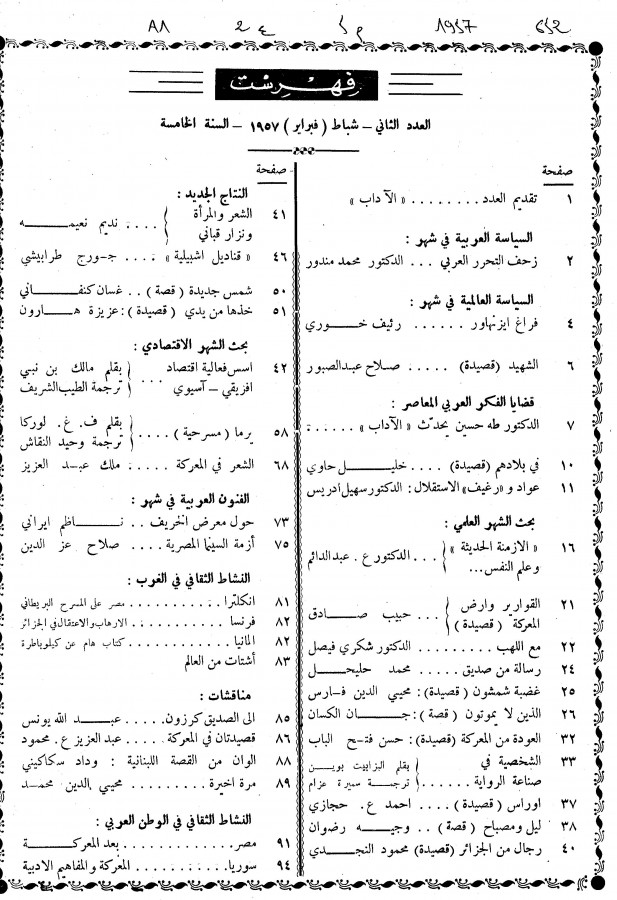 652 1957 ص ك ع 2 A8
فهرست
العدد الثاني – شباط ( فبراير ) ١٩٥٧ – السنة الخامسة
صفحة
١ تقديم العدد . . . . . . . . « الآداب »
السياسة العربية في شهر :
٢ زحف التحرر العربي . . . الدكتور محمد مندور
السياسة العالمية في شهر :
٤ فراغ ايزنهاور . . . . . . رئيف خـــوري
٦ الشهيد (قصيدة) . . . . . صلاح عبدالصبور
قضايا الفكر العربي المعاصر :
٧ الدكتور طه حسين يحدّث «الآداب» . . . . . .
١٠ في بلادهم (قصيدة) . . . . خليـــل حاوي
١١ عواد و«رغيف» الاستقلال : الدكتور سهيل ادريس
بحث الشهر العلمي :
١٦ « الازمنة الحديثة » وعلم النفس... } . . . الدكتور ع . عبدالدائم
٢١ القوارير وارض المعركة (قصيدة) } . . حبيب صـــادق
٢٢ مع اللهب . . . . . . . . . الدكتور شكري فيصل
٢٤ رسالة من صديق . . . . . محمد حليحـــل
٢٥ غضبة شمشون (قصيدة) : محيي الدين فــارس
٢٦ الذين لا يموتون ( قصة ) : جـــان الكسان
٣٢ العودة من المعركة (قصيدة) : حسن فتــح الباب
٣٣ الشخصية في صناعة الرواية . . . . . . } بقلم اليزابيت بويـــن ترجمـــة سميرة عزام
٣٧ اوراس ( قصيدة ) . . . . احمد ع . حجازي
٣٨ ليل ومصباح ( قصة ) . . وجيـــه رضوان
٤٠ رجال من الجزائر (قصيدة) محمود النجـــدي
صفحة
النتاج الجديد :
٤١ الشعر والمرأة ونزار قباني } . . . . نديم نعيمـــه
٤٦ « قناديل اشبيلية » . . . . جـورج طرابيشي
٥٠ شمس جديدة ( قصة ) . . غسان كنفـــاني
٥١ خذها من يدي (قصيدة) : عزيزة هـــارون
بحث الشهر الاقتصادي :
٤٢ اسس فعالية اقتصاد افريقي – آسيوي . . . } بقلم مالك بن نبي ترجمة الطيب الشريف
٥٨ يرما ( مسرحية ) . . . . } بقلم ف . غ . لوركا ترجمة وحيد النقاش
٦٨ الشعر في المعركة . . . . ملك عبـــد العزيز
الفنون العربية في شهر :
٧٣ حول معرض الخريف . . نـــاظم ايراني
٧٥ أزمة السينما المصرية . . . . صلاح عز الدين
النشاط الثقافي في الغرب :
٨١ انكلترا . . . . . . . . . . مصر على المسرح البريطاني
٨٢ فرنسا . . . . . . . . الارهاب والاعتقال في الجزائر
٨٢ المانيا . . . . . . . . . كتاب هام عن كيلوباطرة
٨٣ أشتات من العالم
مناقشات :
٨٥ الى الصديق كرزون . . . . عبـــد الله يونس
٨٦ قصيدتان في المعركة . . عبد العزيز ع . محمود
٨٨ الوان من القصة اللبنانية : وداد سكاكيني
٨٩ مرة اخيرة . . . . . . محيـي الدين محمـد
النشاط الثقافي في الوطن العربي :
٩١ مصر . . . . . . . . . . بعد المعركـــة
٩٤ سوريا . . . . . . . المعركة والمفاهيم الادبية